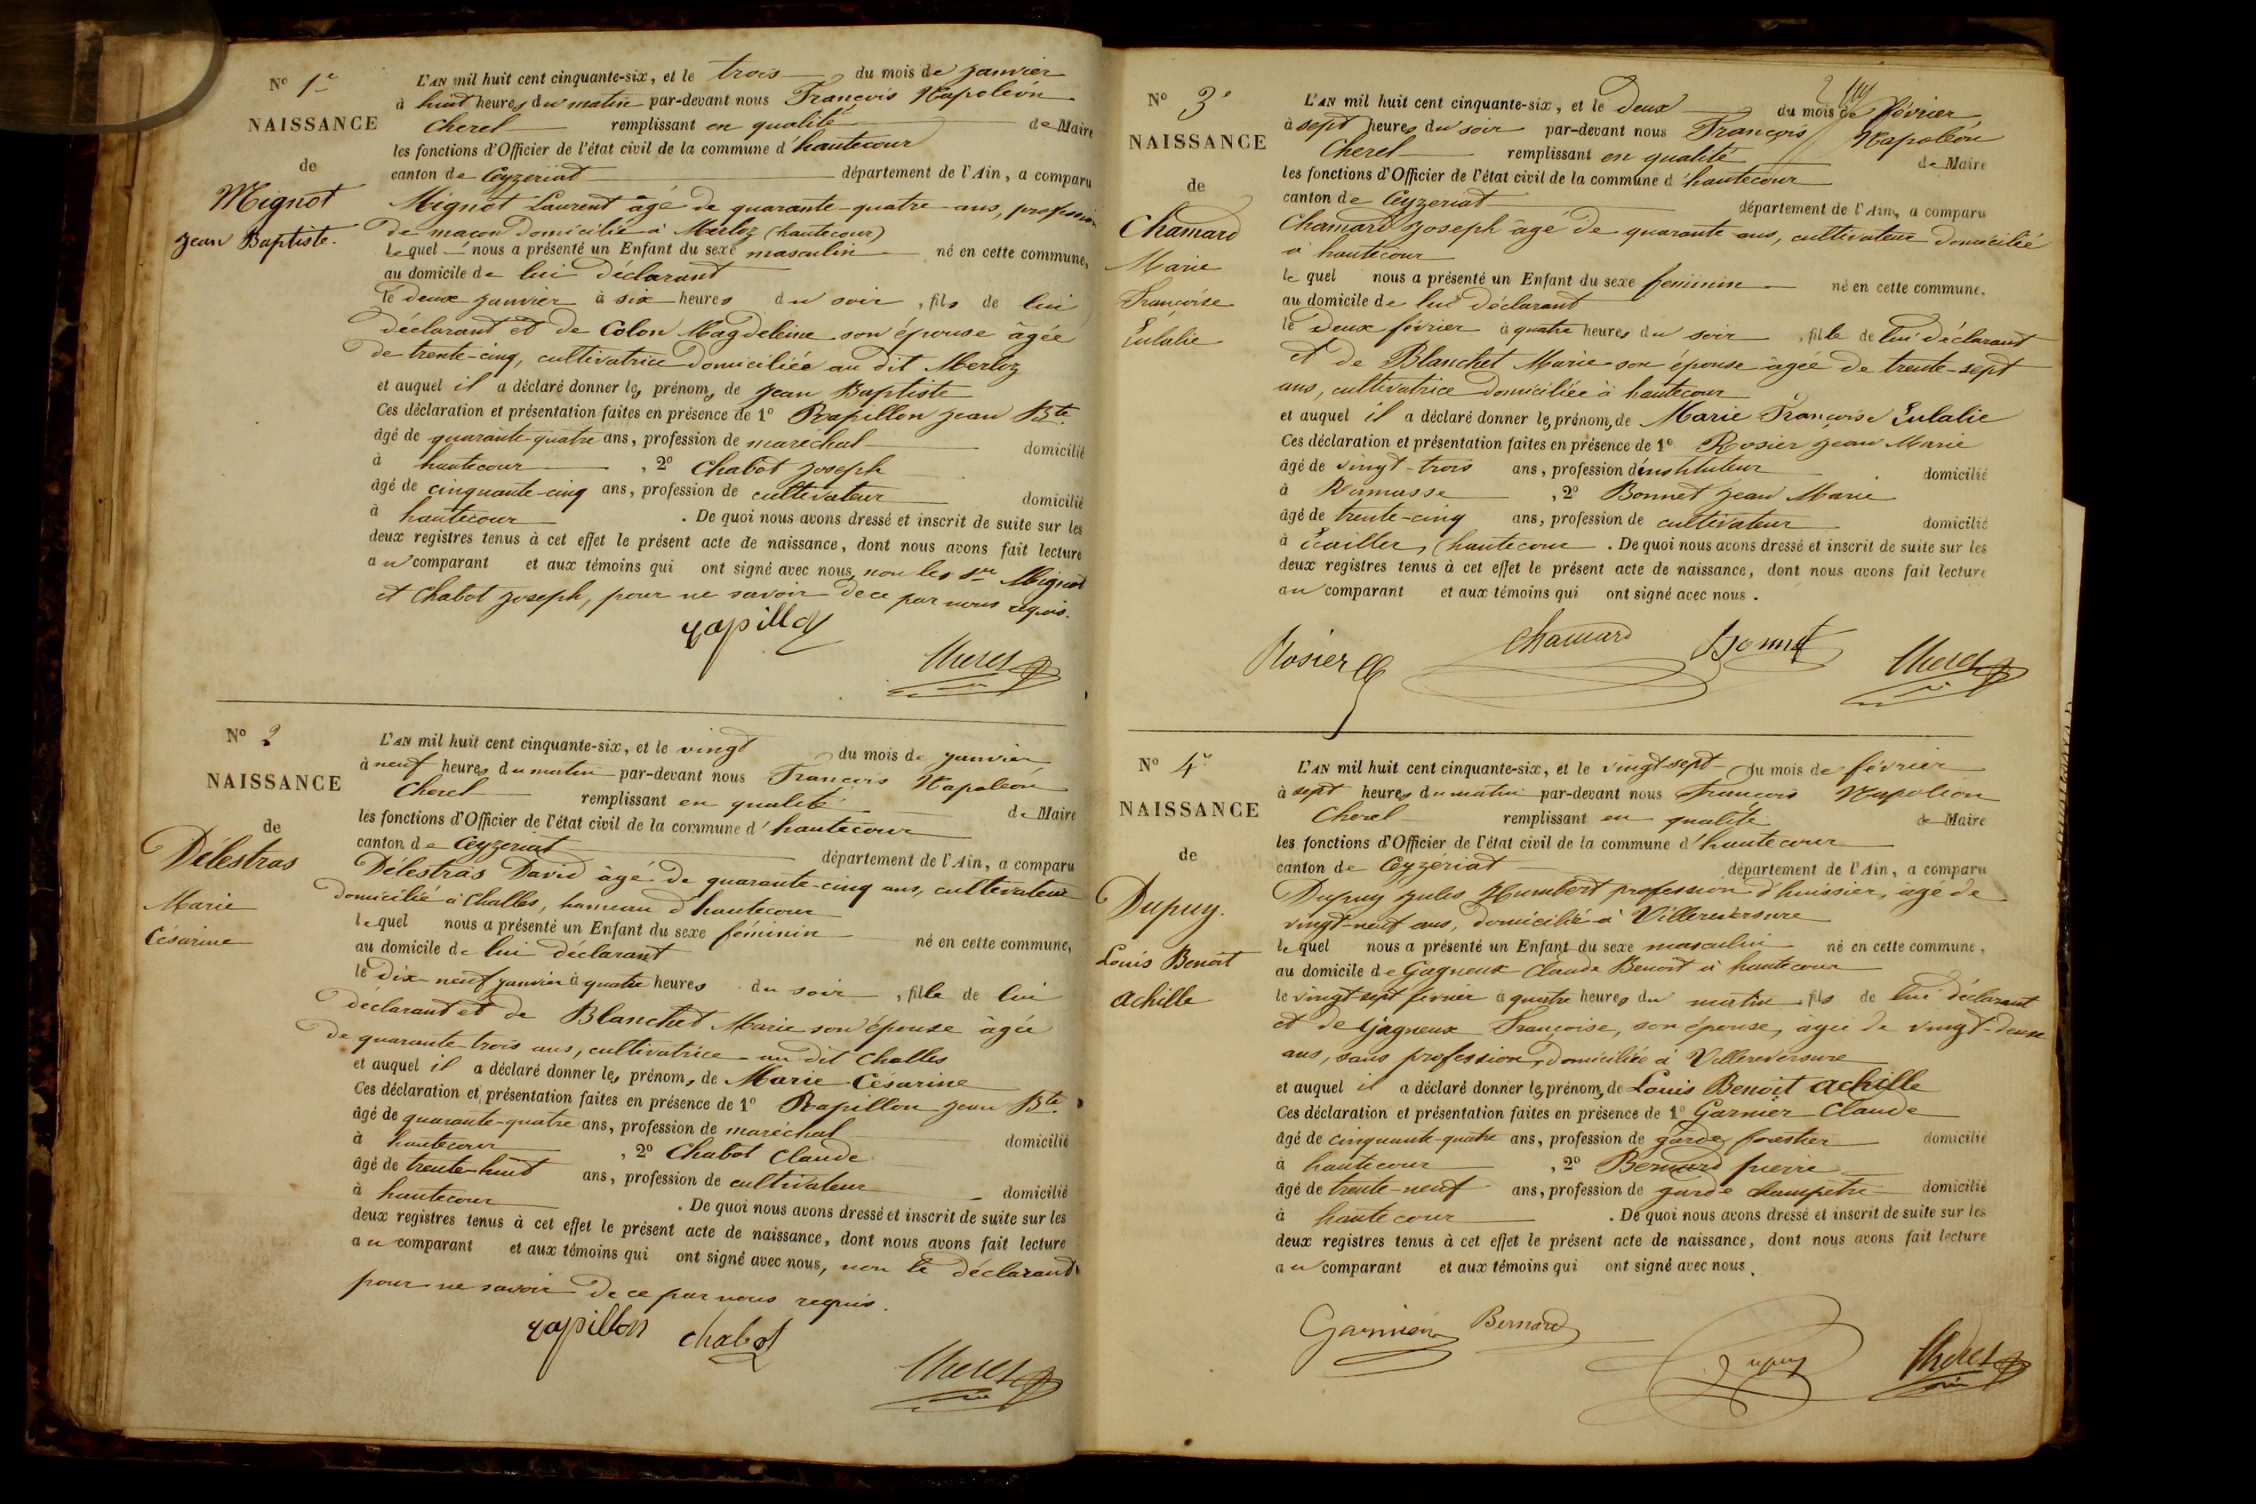 N° 1er
NAISSANCE
de
Mignot
Jean Baptiste.
L'AN mil huit cent cinquante-six, et le trois du mois de janvier
à huit heures du matin par-devant nous François Napoléon
Cherel remplissant en qualité de Maire
les fonctions d'Officier de l'état civil de la commune d'hautecour
canton de Ceyzeriat département de l'Ain, a comparu
Mignot Laurent âgé de quarante-quatre ans, profession
de maçon domicilié à Merloz (hautecour)
Lequel nous a présenté un Enfant du sexe masculin né en cette commune,
au domicile de lui déclarant
le deux janvier à six heures du soir, fils de lui
déclarant et de Colon Magdeleine son épouse âgée
de trente-cinq, cultivatrice domiciliée au dit Merloz
et auquel il a déclaré donner les prénoms de Jean Baptiste
Ces déclaration et présentation faites en présence de 1° Rapillon Jean Bte.
âgé de quarante-quatre ans, profession de maréchal domicilié
à hautecour, 2° Chabot Joseph
âgé de cinquante-cinq ans, profession de cultivateur domicilié
à hautecour. De quoi nous avons dressé et inscrit de suite sur les
deux registres tenus à cet effet le présent acte de naissance, dont nous avons fait lecture
au comparant et aux témoins qui ont signé avec nous, non les Srs Mignot
et Chabot Joseph, pour ne savoir de ce par nous requis.
rapillon
Cherel
N° 2
NAISSANCE
de
Délestras
Marie
Césarine
L'AN mil huit cent cinquante-six, et le vingt du mois de janvier
à neuf heures du matin par-devant nous François Napoléon
Cherel remplissant en qualité de Maire
les fonctions d'Officier de l'état civil de la commune d'hautecour
canton de Ceyzeriat département de l'Ain, a comparu
Délestras David âgé de quarante-cinq ans, cultivateur
domicilié à Challes, hameau d'hautecour
lequel nous a présenté un Enfant du sexe féminin né en cette commune,
au domicile de lui déclarant
le dix-neuf janvier à quatre heures du soir, fille de lui
déclarant et de Blanchet Marie son épouse âgée
de quarante-trois ans, cultivatrice au dit Challes
et auquel il a déclaré donner les prénoms de Marie Césarine
Ces déclaration et présentation faites en présence de 1° Rapillon Jean Bte.
âgé de quarante-quatre ans, profession de maréchal domicilié
à hautecour, 2° Chabot Claude
âgé de trente-huit ans, profession de cultivateur domicilié
à hautecour. De quoi nous avons dressé et inscrit de suite sur les
deux registres tenus à cet effet le présent acte de naissance, dont nous avons fait lecture
au comparant et aux témoins qui ont signé avec nous, non le déclarant
pour ne savoir de ce par nous requis.
rapillon chabot
Cherel
N° 3e
NAISSANCE
de
Chamard
Marie
Françoise
Eulalie
L'AN mil huit cent cinquante-six, et le deux du mois de février,
à sept heures du soir par-devant nous François Napoléon
Cherel remplissant en qualité de Maire
les fonctions d'Officier de l'état civil de la commune d'hautecour
canton de Ceyzeriat département de l'Ain, a comparu
Chamard Joseph âgé de quarante ans, cultivateur domicilié
à hautecour
lequel nous a présenté un Enfant du sexe féminin né en cette commune,
au domicile de lui déclarant
le deux février à quatre heures du soir, fille de lui déclarant
et de Blanchet Marie son épouse âgée de trente-sept
ans, cultivatrice domiciliée à hautecour
et auquel il a déclaré donner les prénoms de Marie Françoise Eulalie
Ces déclaration et présentation faites en présence de 1° Rosier Jean Marie
âgé de vingt-trois ans, profession d'instituteur domicilié
à Ramasse, 2° Bonnet Jean Marie
âgé de trente-cinq ans, profession de cultivateur domicilié
à (hautecour. De quoi nous avons dressé et inscrit de suite sur les
deux registres tenus à cet effet le présent acte de naissance, dont nous avons fait lecture
au comparant et aux témoins qui ont signé avec nous.
Rosier Chamard Bonnet Cherel
N° 4e
NAISSANCE
de
Dupuy.
Louis Benoit
achille
L'AN mil huit cent cinquante-six, et le vingt-sept du mois de février
à sept heures du matin par-devant nous François Napoléon
Cherel remplissant en qualité de Maire
les fonctions d'Officier de l'état civil de la commune d'hautecour
canton de Ceyzériat département de l'Ain, a comparu
Dupuy Jules Humbert profession d'huissier, âgé de
vingt-neuf ans, domicilié à Villereversure
lequel nous a présenté un Enfant du sexe masculin né en cette commune,
au domicile de Gagneux Claude Benoit à hautecour
le vingt-sept février à quatre heures du matin, fils de lui déclarant
et de Gagneux Françoise, son épouse, âgée de vingt-deux
ans, sans profession, domiciliée à Villereversure
et auquel il a déclaré donner les prénoms de Louis Benoit achille
Ces déclaration et présentation faites en présence de 1° Garnier Claude
âgé de cinquante-quatre ans, profession de garde forestier domicilié
à hautecour, 2° Bernard pierre
âgé de trente-neuf ans, profession de garde champetre domicilié
à hautecour. De quoi nous avons dressé et inscrit de suite sur les
deux registres tenus à cet effet le présent acte de naissance, dont nous avons fait lecture
au comparant et aux témoins qui ont signé avec nous.
Garnier Bernard
Dupuy Cherel